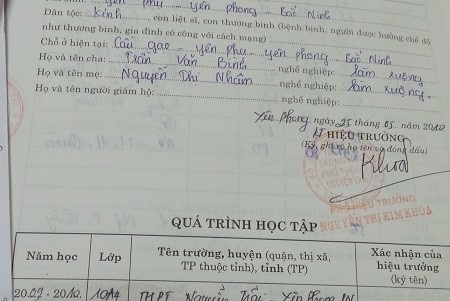 yên phụ - yên phong - Bắc Ninh
Dân tộc: kinh con liệt sĩ, con thương binh (bệnh binh, người được hưởng chế độ
như thương binh, gia đình có công với cách mạng)
Chỗ ở hiện tại: Cầu gạo - yên phụ - yên phong - Bắc Ninh
Họ và tên cha: Trần Văn Bình nghề nghiệp: làm ruộng
Họ và tên mẹ: Nguyễn Thị Nhâm nghề nghiệp: làm ruộng.
Họ và tên người giám hộ: nghề nghiệp:
Yên Phong, ngày 25 tháng 05 năm 2010
HIỆU TRƯỞNG
(Ký, ghi rõ họ tên và đóng dấu)
Khoa
PHÓ HIỆU TRƯỞNG
NGUYỄN THỊ KIM KHOA
QUÁ TRÌNH HỌC TẬP
Năm học Lớp Tên trường, huyện (quận, thị xã, TP thuộc tỉnh), tỉnh (TP) Xác nhận của hiệu trưởng (ký tên)
2009 - 2010. 10A4 THPT Nguyễn Trãi - Yên Phong